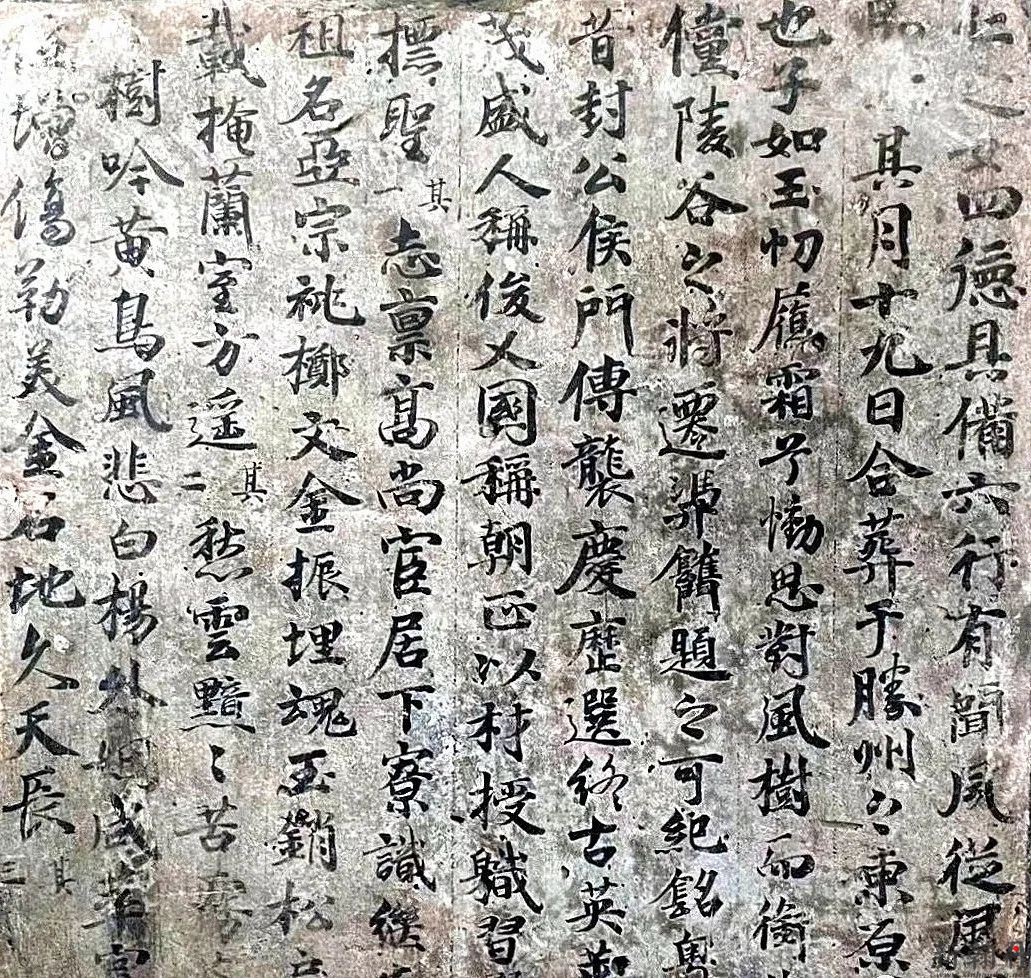 四德具備六行有聞夙從風
其月十九日合葬于勝州々東原
也子如玉忉膺霜兮慟思對風樹而銜
僮陵谷之將遷題之可紀銘粵
昔封公侯門傳襲慶歷選終古英
茂盛人稱俊乂國稱朝正以材授職習
標聖其一志稟高尚宦居下寮讖
祖名亞宗祧擲文金振埋魂玉銷松
載掩蘭室方遥其二愁雲黯々苦霧
樹吟黄鳥風悲白楊外姻咸
增傷勒美金石地久天長其三